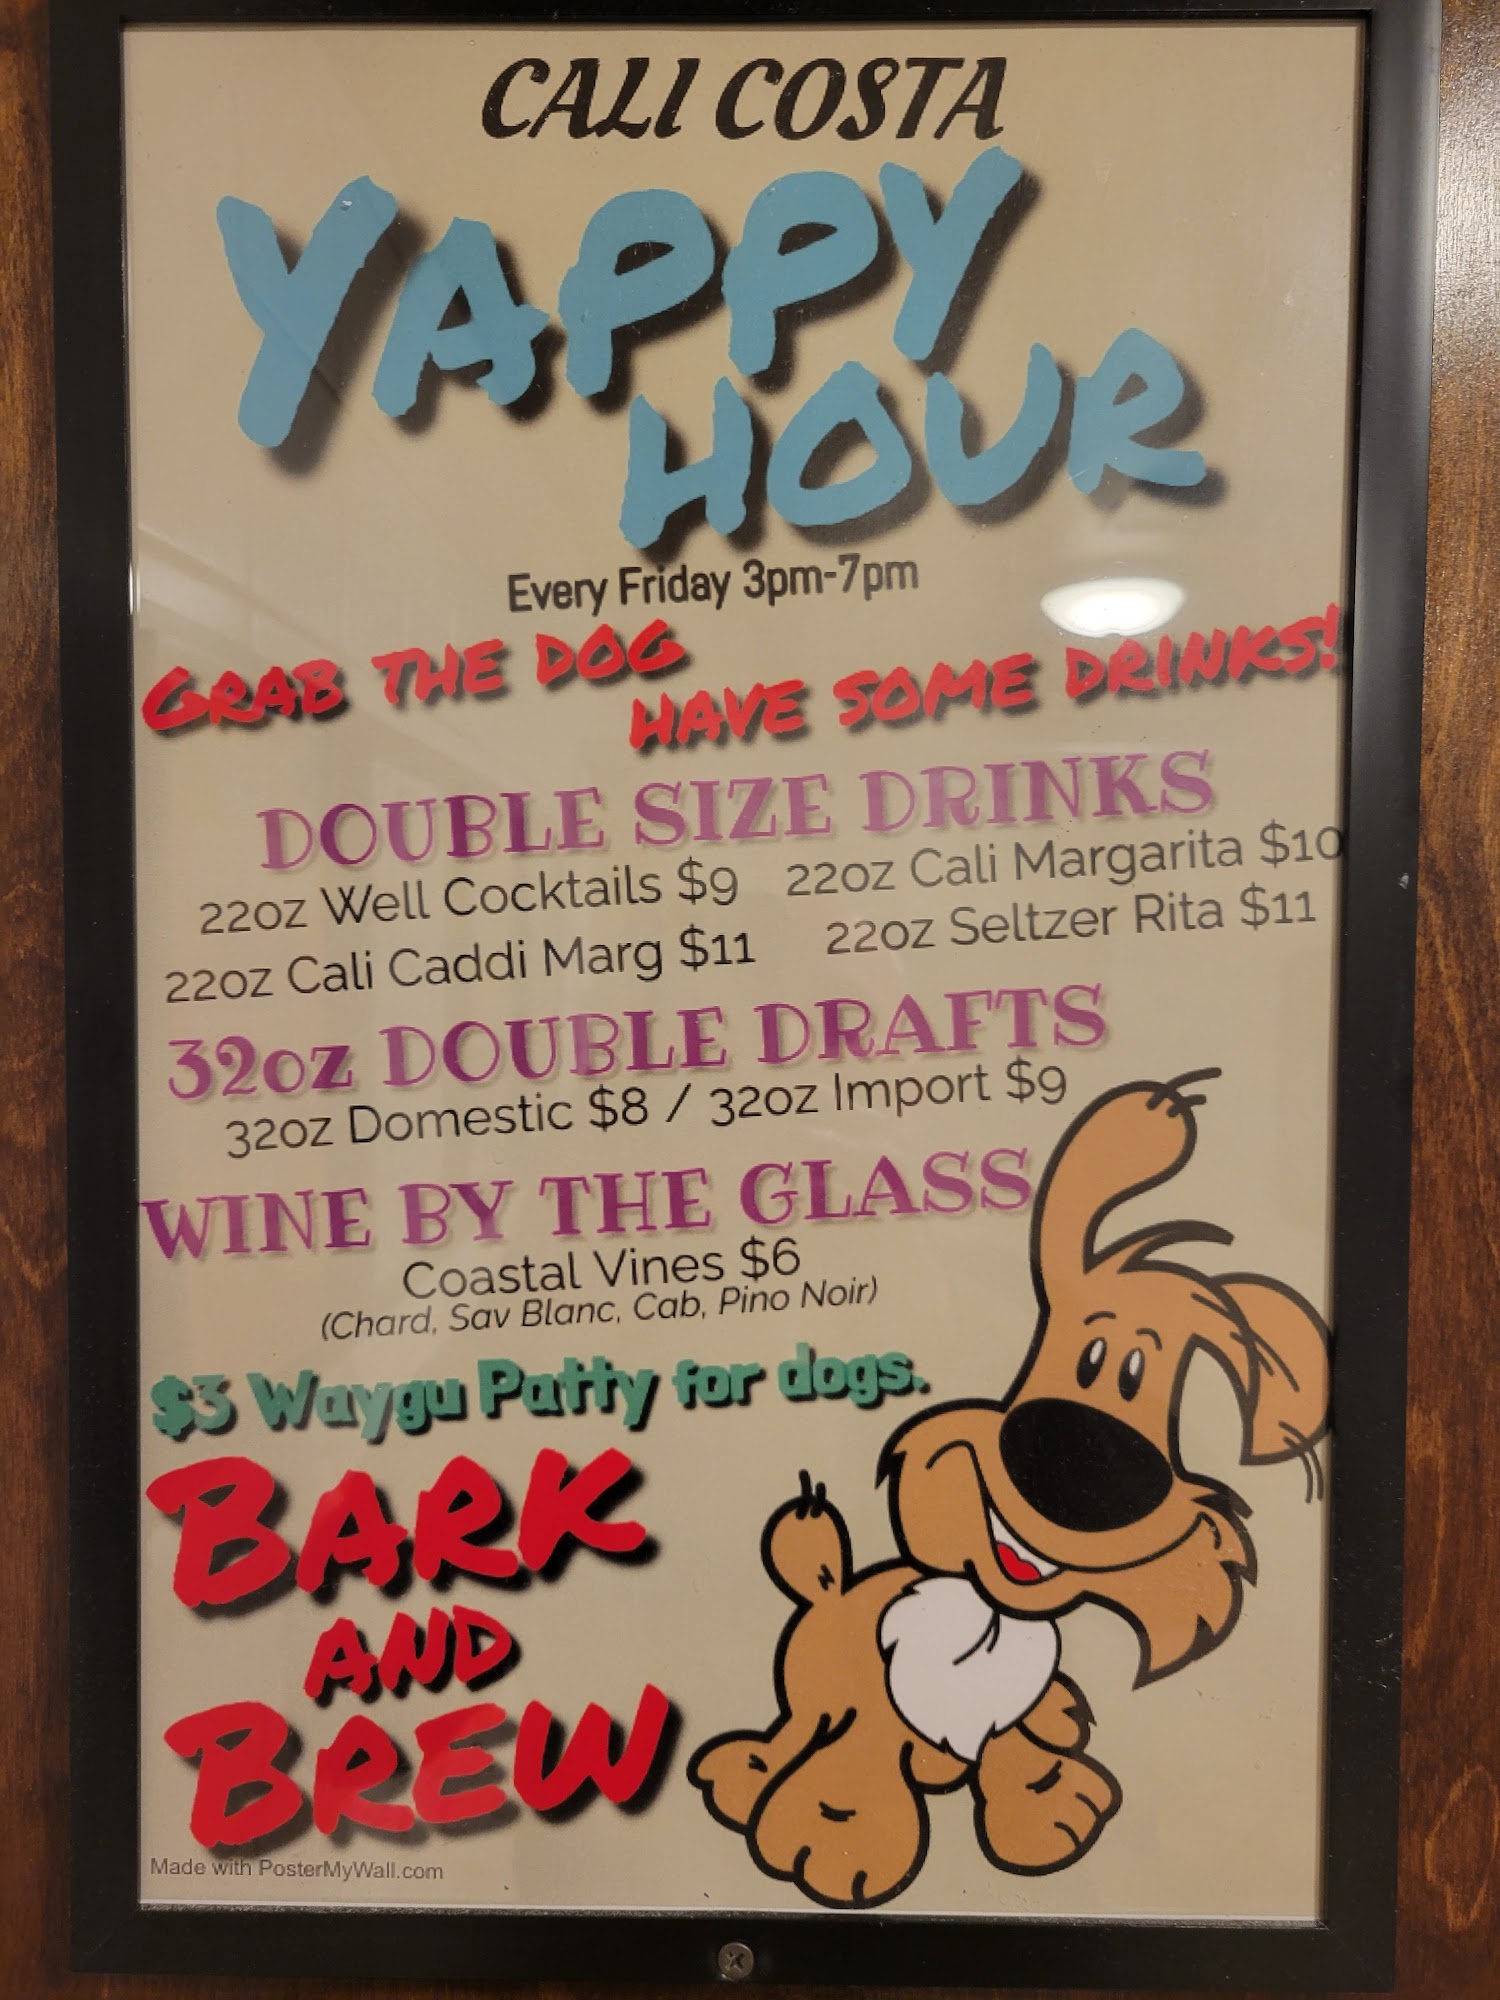 CALI COSTA
YAPPY
HOUR
Every Friday 3pm-7pm
GRAB THE DOG
HAVE SOME DRINKS!
DOUBLE SIZE DRINKS
22oz Well Cocktails $9 22oz Cali Margarita $10
22oz Cali Caddi Marg $11 22oz Seltzer Rita $11
32oz DOUBLE DRAFTS
32oz Domestic $8 / 32oz Import $9
WINE BY THE GLASS
Coastal Vines $6
(Chard, Sav Blanc, Cab, Pino Noir)
$3 Waygu Patty for dogs.
BARK
AND
BREW
Made with PosterMyWall.com